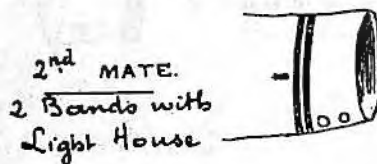 2nd MATE.
2 Bands with
Light House